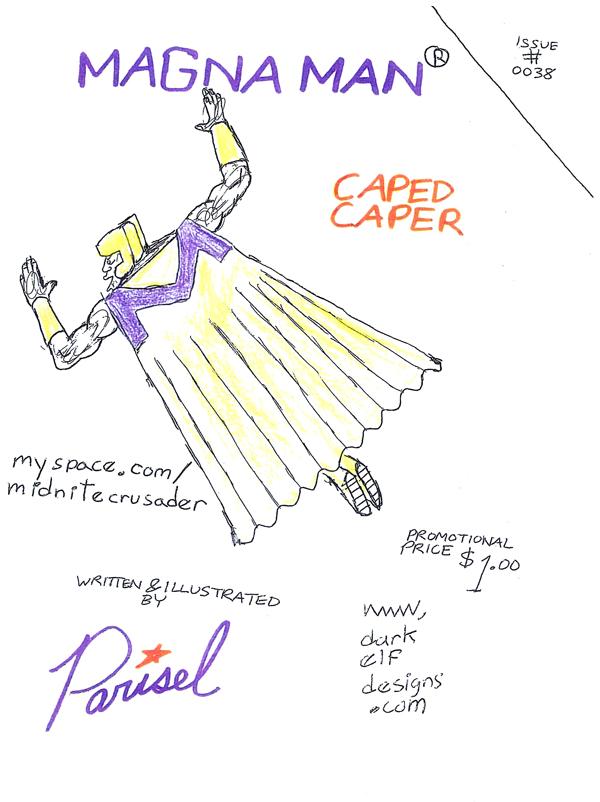 MAGNA MAN®
ISSUE
#
0038
CAPED
CAPER
myspace.com/
midnitecrusader
PROMOTIONAL
PRICE $1.00
WRITTEN & ILLUSTRATED
BY
Parisel
www,
dark
elf
designs
.com